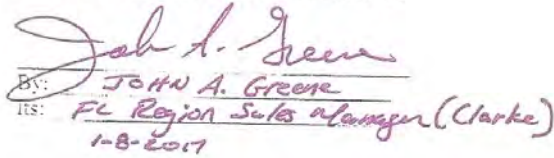 John A. Greene
By: JOHN A. Greene
Its: FL Region Sales Manager (Clarke)
1-8-2017